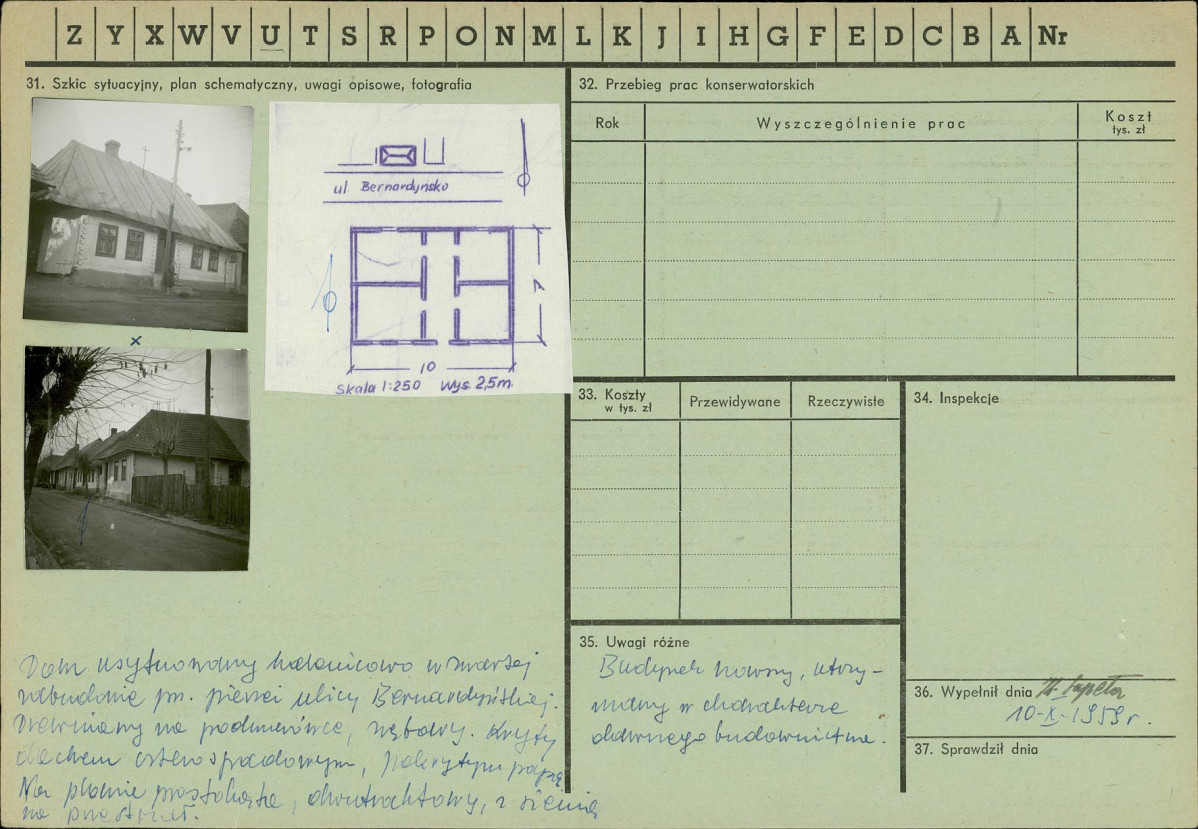 Z Y X W V U T S R P O N M L K J I H G F E D C B A Nr
31. Szkic sytuacyjny, plan schematyczny, uwagi opisowe, fotografia
ul Bernardyńsko
7
10
Skala 1:250 Wys. 2,5m.
x
Dom usytuowany kalenicowo w zwartej
zabudowie pn. pierzei ulicy Bernardyńskiej.
Drewniany na podmurówce, zrębowy. Kryty
dachem czterospadowym, pokrytym papą
Na planie prostokąta, dwutraktowy, z sienią
na przestrzał.
32. Przebieg prac konserwatorskich
Rok Wyszczególnienie prac Koszt
tys. zł
33. Koszty
w tys. zł
Przewidywane Rzeczywiste
34. Inspekcje
35. Uwagi różne
Budynek nowszy, utrzy-
many w charakterze
dawnego budownictwa.
36. Wypełnił dnia
10-X-1959 r.
37. Sprawdził dnia